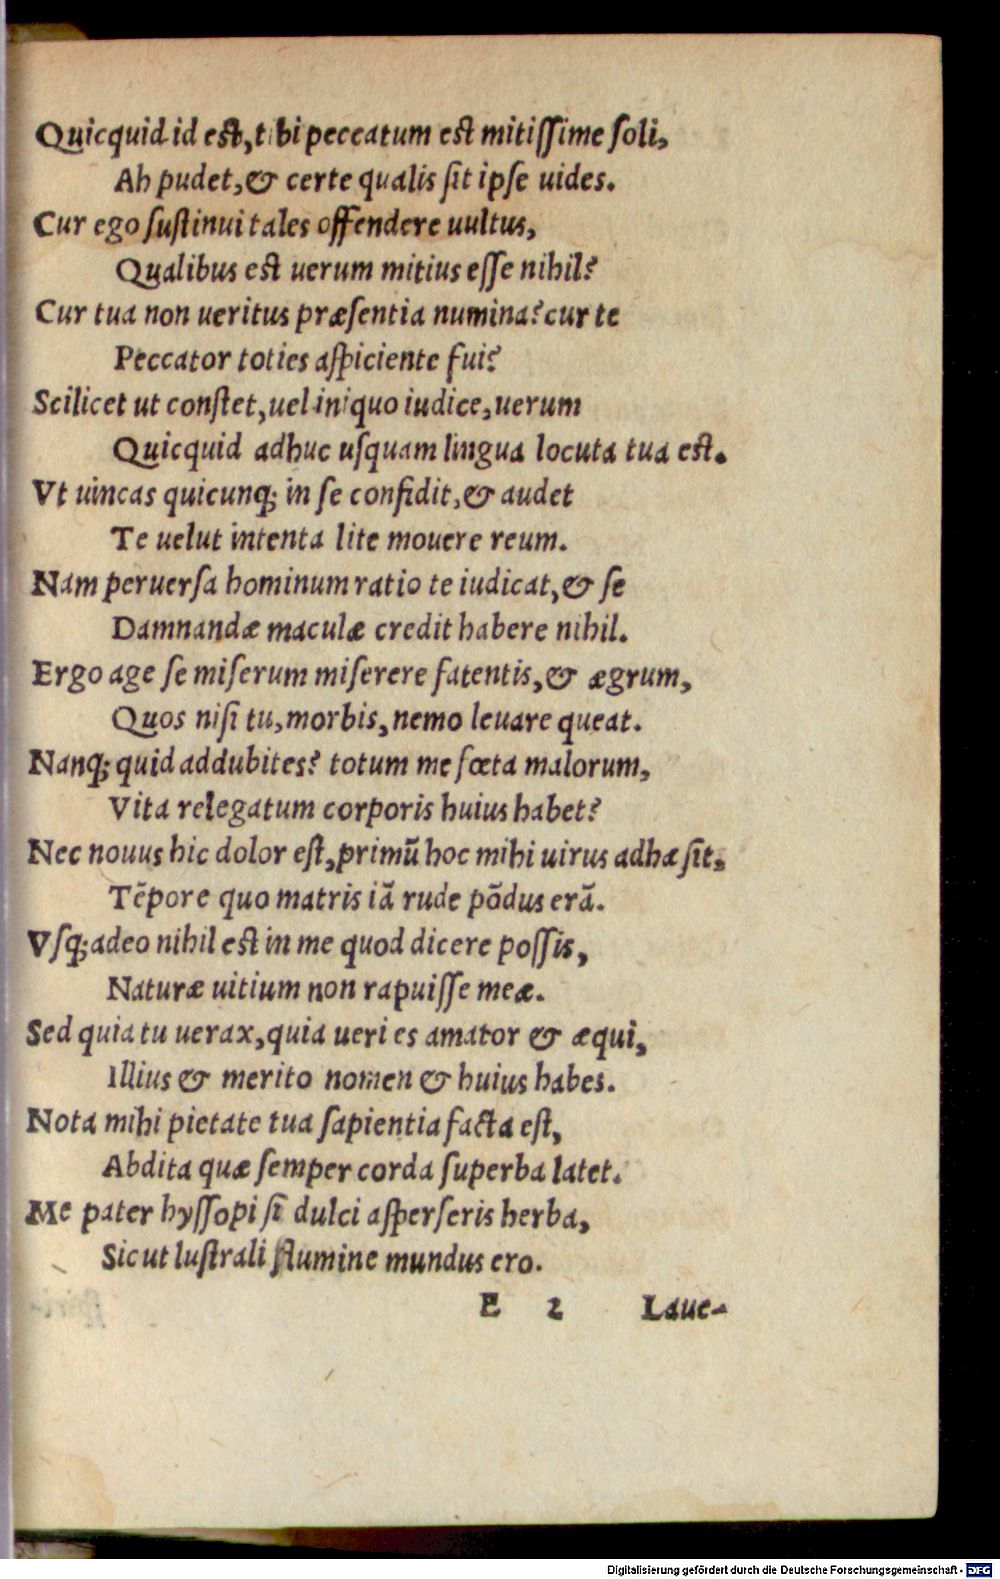 Quicquid id est, tibi peccatum est mitiſſime ſoli,
Ah pudet, & certe qualis ſit ipſe uides.
Cur ego ſuſtinui tales offendere uultus,
Qualibus est uerum mitius eſſe nihil?
Cur tua non ueritus præſentia numina? cur te
Peccator toties aſpiciente fui?
Scilicet ut conſtet, uel iniquo iudice, uerum
Quicquid adhuc uſquam lingua locuta tua est.
Vt uincas quicunq; in ſe confidit, & audet
Te uelut intenta lite mouere reum.
Nam peruerſa hominum ratio te iudicat, & ſe
Damnandæ maculæ credit habere nihil.
Ergo age ſe miſerum miſerere fatentis, & ægrum,
Quos niſi tu, morbis, nemo leuare queat.
Nanq; quid addubites? totum me fœta malorum,
Vita relegatum corporis huius habet?
Nec nouus hic dolor eſt, primũ hoc mihi uirus adhæſit,
Tẽpore quo matris iã rude põdus erã.
Vſq; adeo nihil est in me quod dicere poſſis,
Naturæ uitium non rapuiſſe meæ.
Sed quia tu uerax, quia ueri es amator & æqui,
Illius & merito nomen & huius habes.
Nota mihi pietate tua ſapientia facta eſt,
Abdita quæ ſemper corda ſuperba latet.
Me pater hyſſopi ſi dulci aſperſeris herba,
Sic ut luſtrali flumine mundus ero.
E 2 Laue-
Digitalisierung gefördert durch die Deutsche Forschungsgemeinschaft - DFG